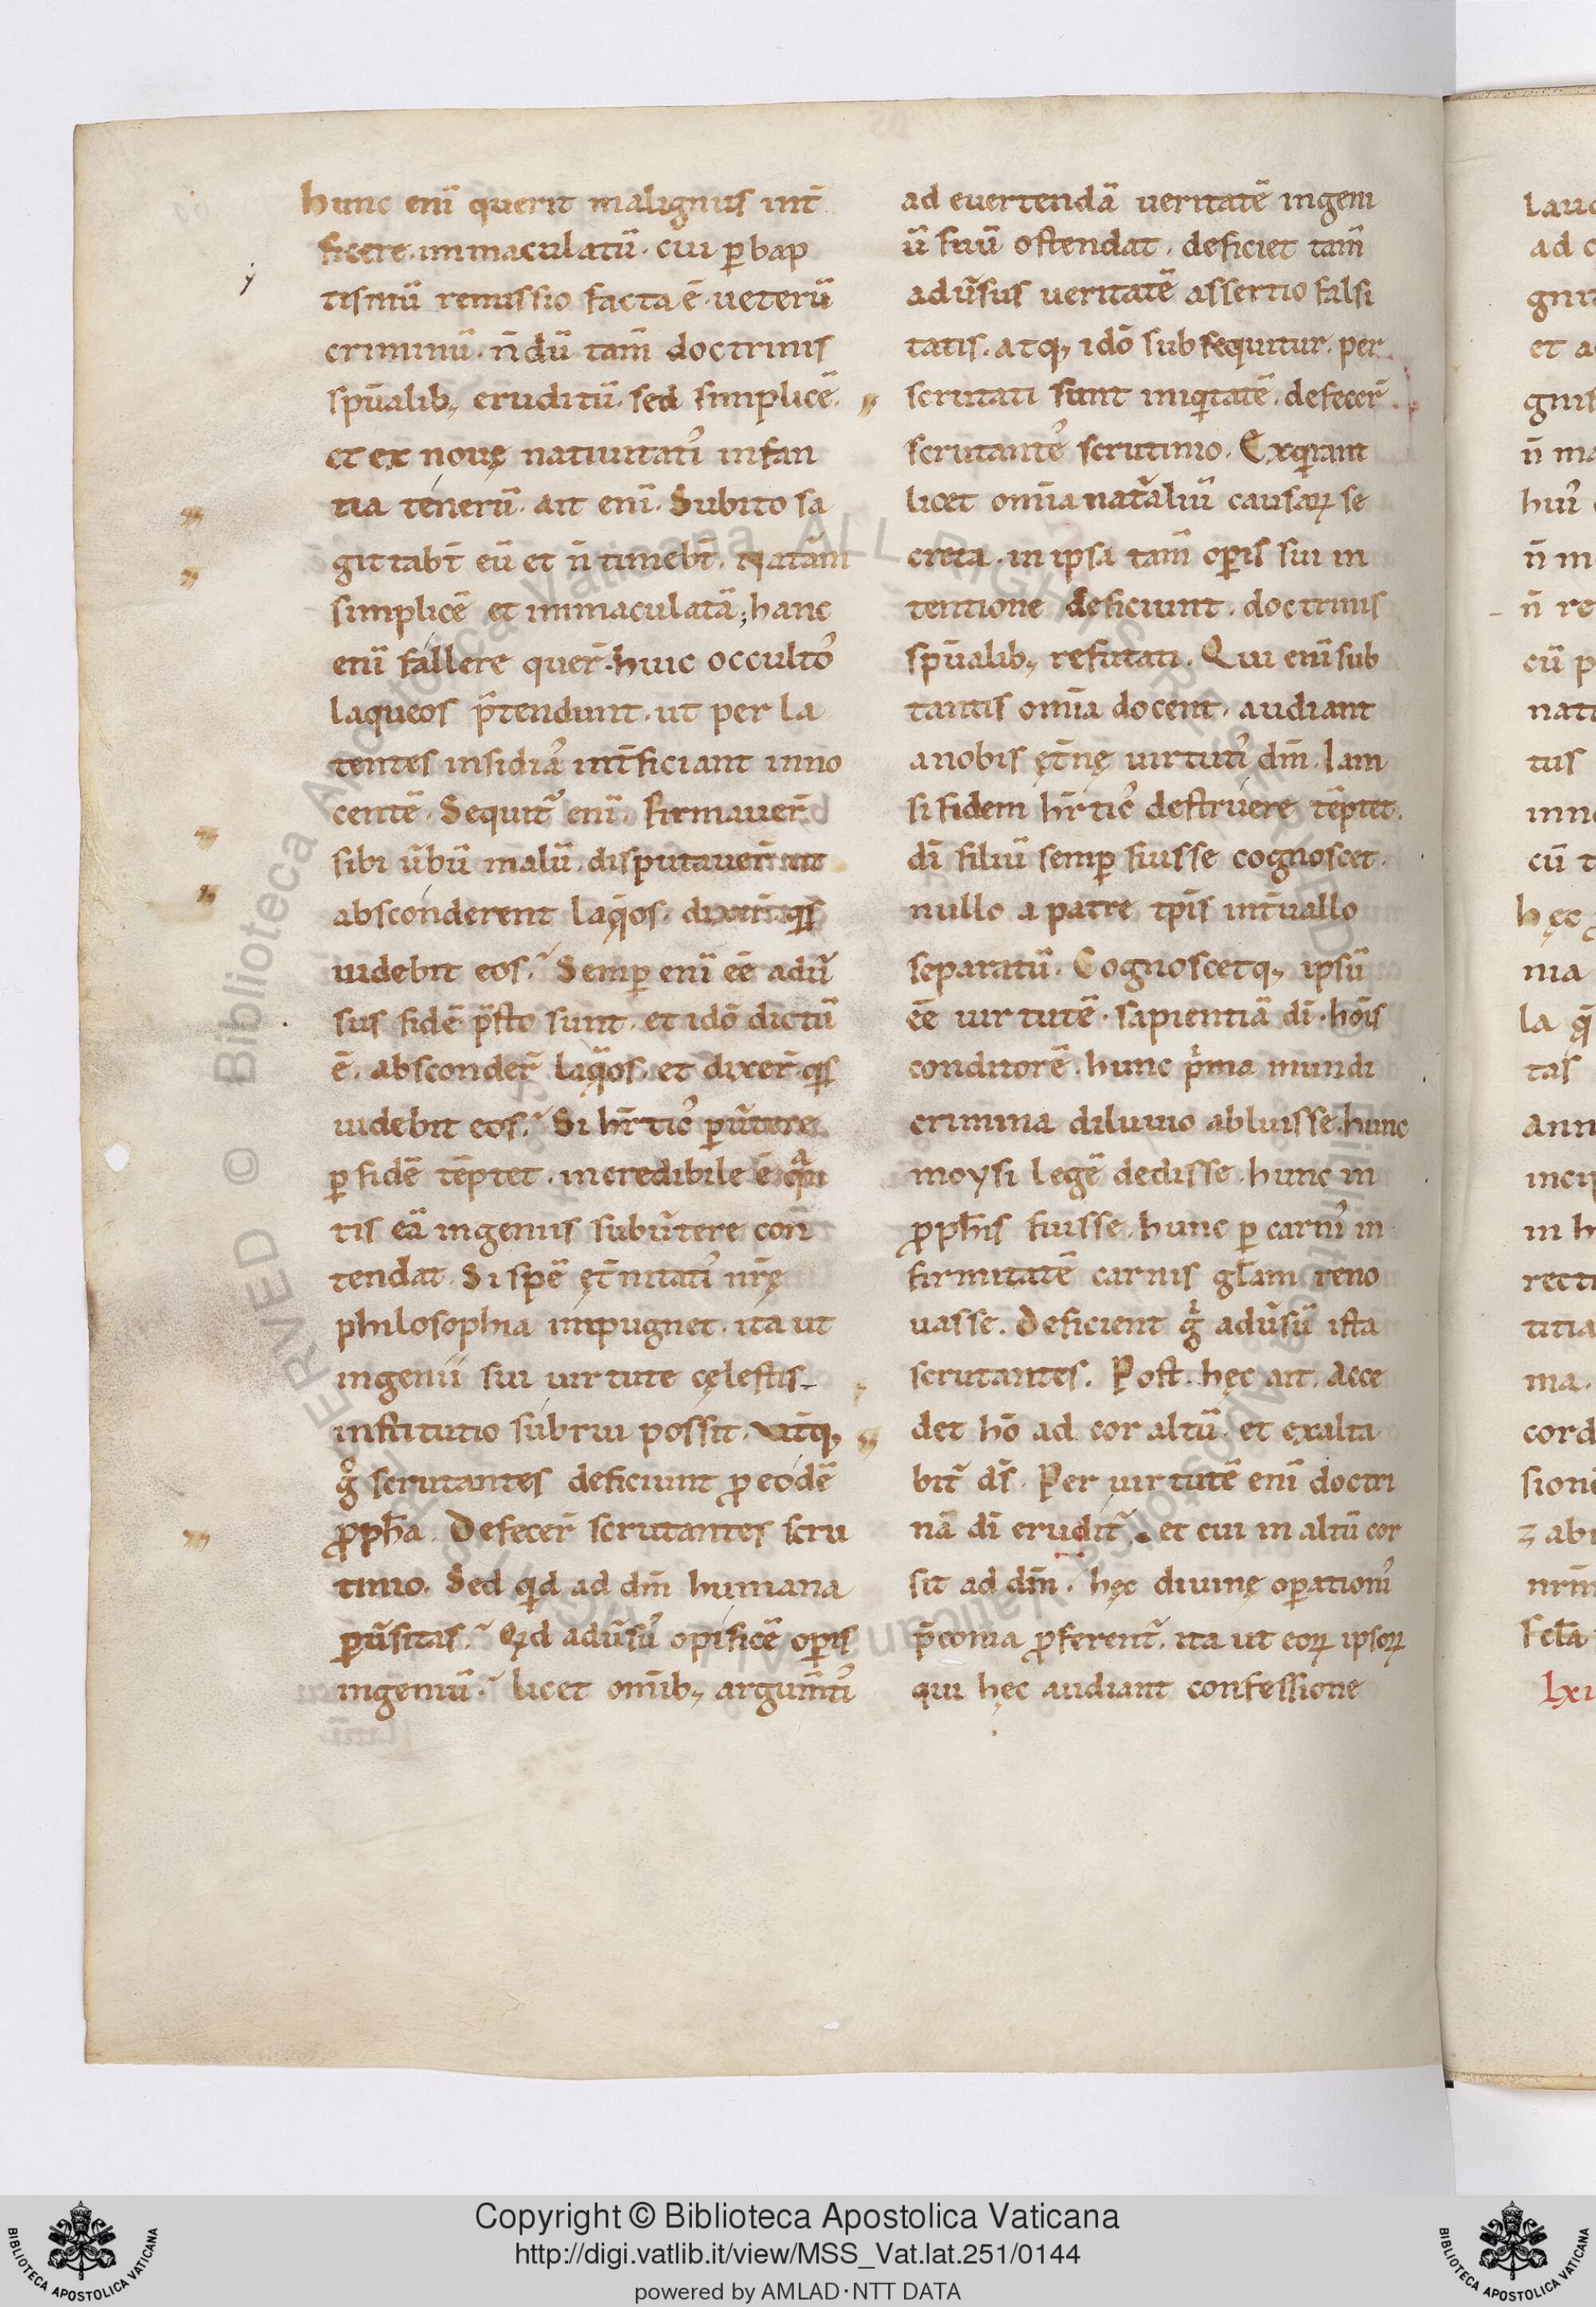 hunc enī querit malignus int̄
ficere. immaculatū. cui ꝑ bap
tismū remissio facta ē. ueterū
criminū. n̄ dū tam̄ doctrinis
spūalib; eruditū. sed simplicē.
et ex nouę natiuitatꝭ infan
tia tenerū. ait enī. Subito sa
gittabt̄ eū et n̄ timebt̄.
simplicē et immaculatā; hanc
enī fallere quer̄. huic occultoˀ
laqueos p̄tendunt. ut per la
tentes insidiaˀ int̄ficiant inno
centē. Sequit᷑ enī. firmauer̄
sibi ūbū malū. disputauer̄ ut
absconderent laq̄os. dixer̄ qͥs
uidebit eos? Semꝑ enī eē adū
sus fidē p̄sto sunt. et idō dictū
ē. absconder̄ laq̄os. et dixer̄ qͥs
uidebit eos? Si hr̄ticˀ ꝑūtere
ꝑfidē tēptet. incredibile ē qͣn
tis eā ingeniis subūtere con
tendat. Si spē ęt̄nitatꝭ nrę
philosophia impugnet. ita ut
ingenii sui uirtute cęlestis
institutio subrui possit. utiq;
g̊ scrutantes deficiunt ꝓ eodē
ꝓph̄a. Defecer̄ scrutantes scru
tinio. Sed qͥd ad dm̄ humana
ꝑūsitas? Qͥd adūsuˀ opificē oꝑis
ingeniū? licet om̄ib; argum̄tꝭ
ad euertendā ueritatē ingeni
ū suū ostendat. deficiet tam̄
adūsus ueritatē assertio falsi
tatis. atq; idō subsequitur. per
scrutati sunt iniqͥtatē. defecer̄
scrutanteˀ scrutinio. Exqͥrant
licet om̄ia nat᷑aliū causaꝝ se
creta. in ipsa tam̄ oꝑis sui in
tentione deficiunt. doctrinis
spūalib; refutati. Qui enī sub
tantis om̄ia docent. audiant
a nobis ęt̄nę uirtutꝭ dm̄. Iam
si fidem hr̄ticˀ destruere tēptet.
dī filiū semꝑ fuisse cognoscet.
nullo a patre tp̄is int̄uallo
separatū. Cognoscetq; ipsū
eē uirtutē. sapientiā dī. hōis
conditorē. hunc pͥma mundi
crimina diluuio abluisse. hunc
moysi legē dedisse. hunc in
ꝓph̄is fuisse. hunc ꝑ carnꝭ in
firmitatē carnis gl̄am reno
uasse. Deficient g̊ adūsū ista
scrutantes. Post hęc ait. Acce
det hō ad cor altū. et exalta
bit᷑ ds̄. Per uirtutē enī doctri
nā dī erudit᷑. et cui in altū cor
sit ad dm̄. hęc diuinę oꝑationꝭ
p̄conia ꝓferent᷑. ita ut eoꝝ ipsoꝝ
qui hęc audiant confessione
laud
ad c
gnit
et a
gnis
n̄ ma
huiˀ
n̄ m
n̄ re
cū p
nati
tus
inno
cū t
hęc
nia
la q̄
tas
ann
incip
in h
recti
titia
ma.
cord
sion
abi
nrm̄
Lxi
© Biblioteca Apostolica Vaticana ALL RIGHTS RESERVED
Copyright © Biblioteca Apostolica Vaticana
http://digi.vatlib.it/view/MSS_Vat.lat.251/0144
powered by AMLAD·NTT DATA
BIBLIOTECA APOSTOLICA VATICANA
BIBLIOTECA APOSTOLICA VATICANA